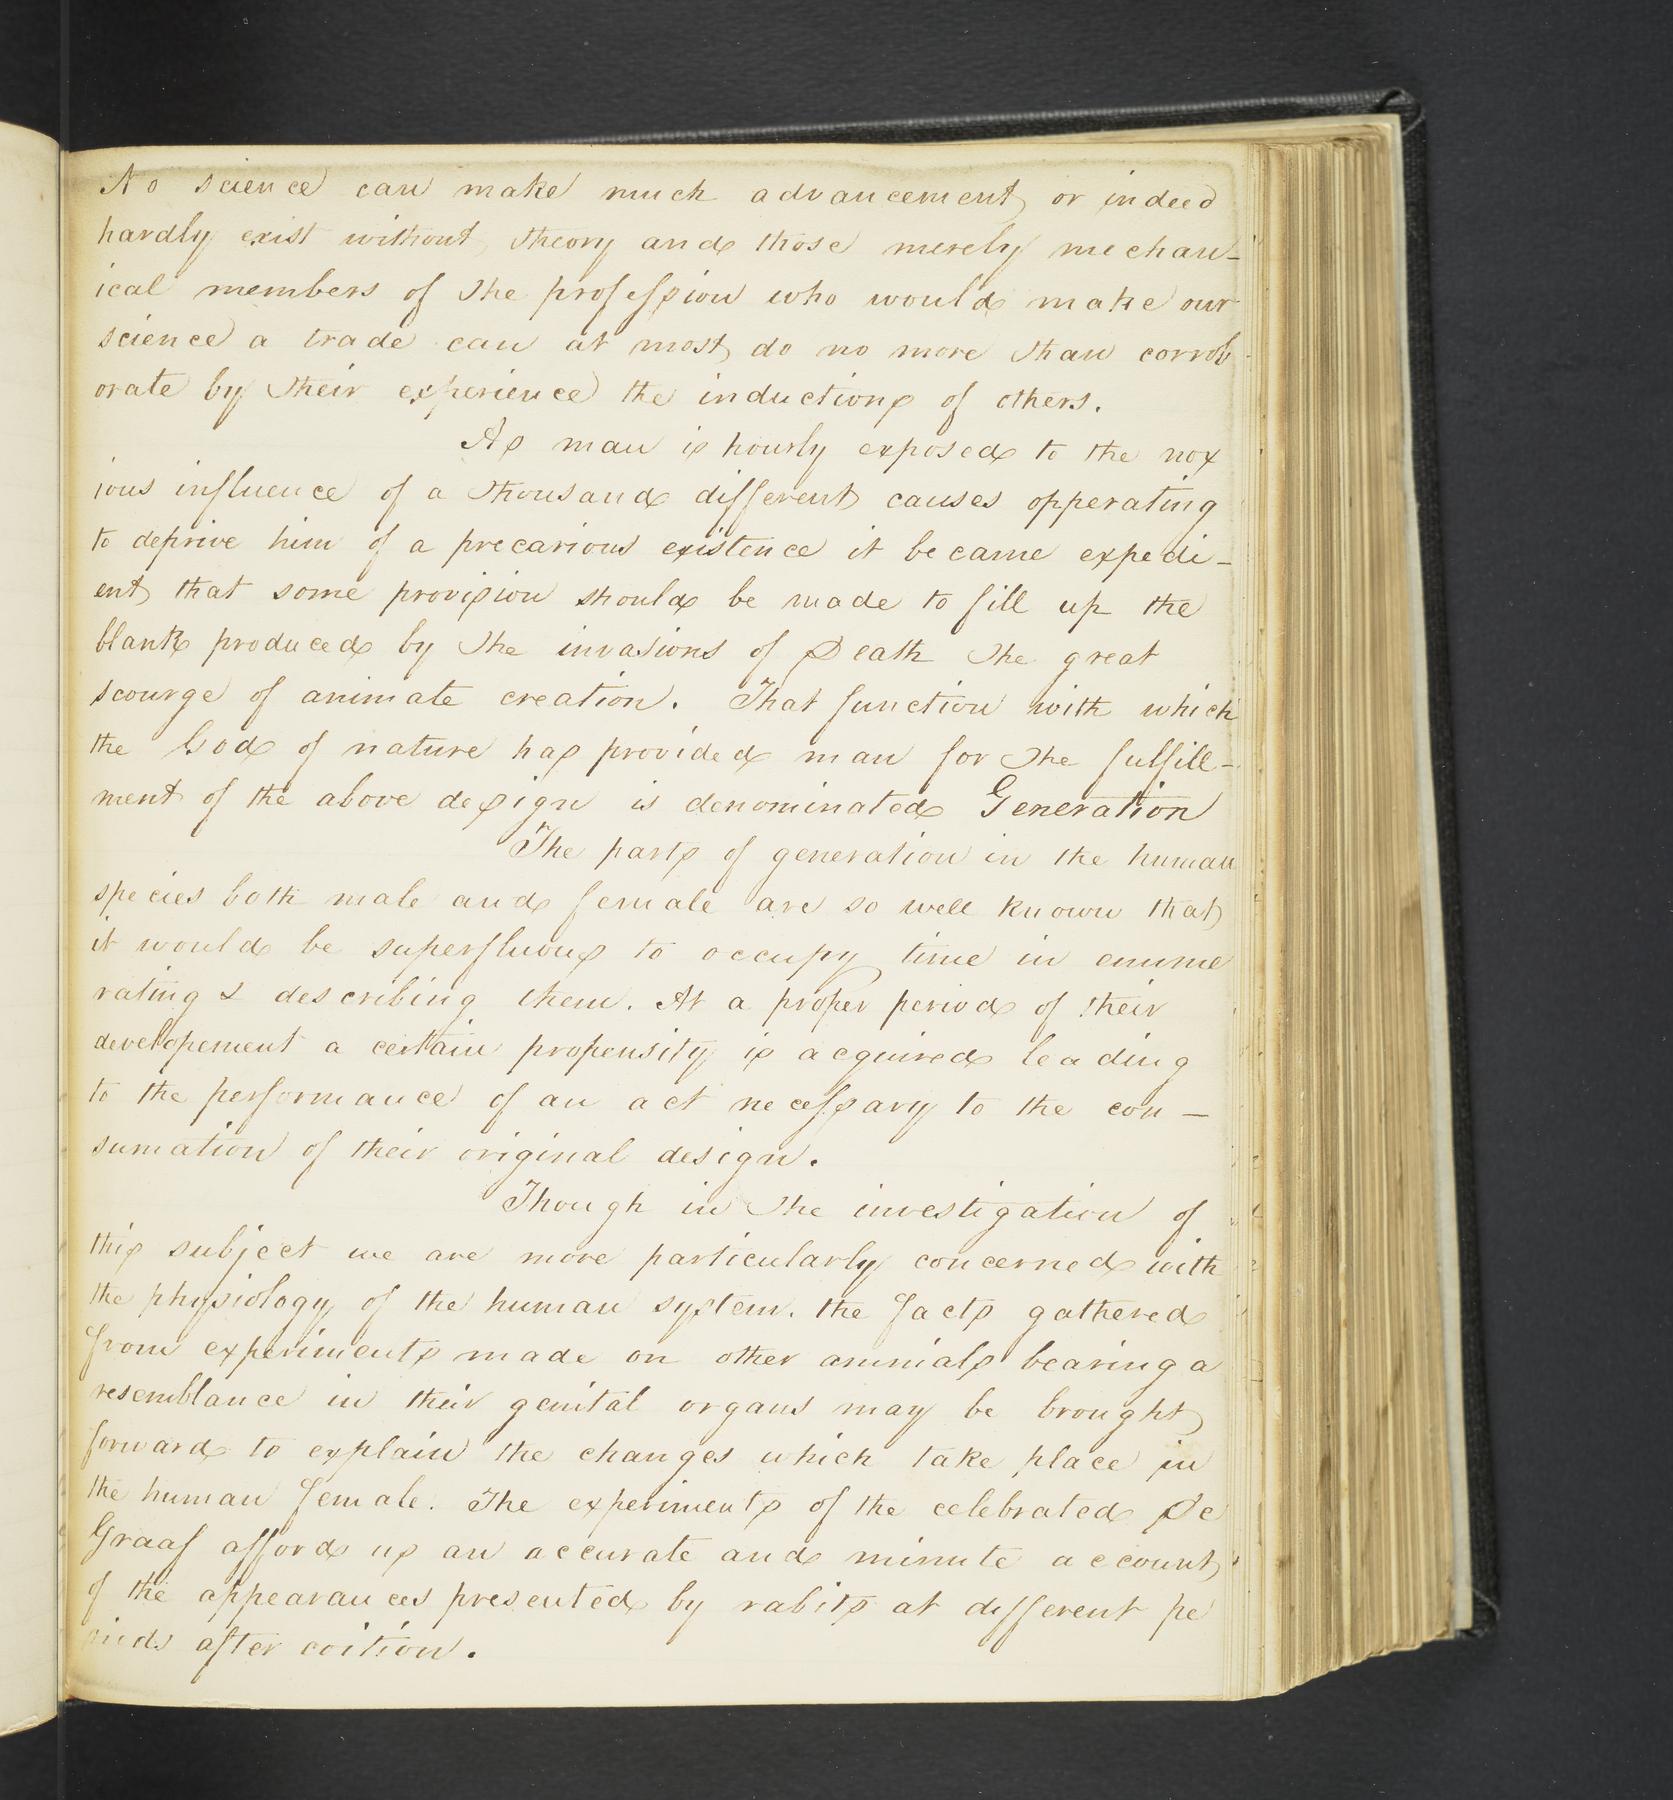 No science can make much advancement or indeed
hardly exist without theory and those merely mechan-
ical members of the profession who would make our
science a trade can at most do no more than corrob
orate by their experience the inductions of others.
As man is hourly exposed to the nox
ious influence of a thousand different causes opperating
to deprive him of a precarious existence it became expedi-
ent that some provision should be made to fill up the
blank produced by the invasions of Death the great
scourge of animate creation. That function with which
the God of nature has provided man for the fulfill-
ment of the above design is denominated Generation
The parts of generation in the human
species both male and female are so well known that
it would be superfluous to occupy time in enume
rating & describing them. At a proper period of their
developement a certain propensity is acquired leading
to the performance of an act necessary to the con-
sumation of their original design.
Though in the investigation of
this subject we are more particularly concerned with
the physiology of the human system. the facts gathered
from experiments made on other animals bearing a
resemblance in their genital organs may be brought
forward to explain the changes which take place in
the human female. The experiments of the celebrated De
Graaf afford us an accurate and minute account
of the appearances presented by rabits at different pe
riods after coition.